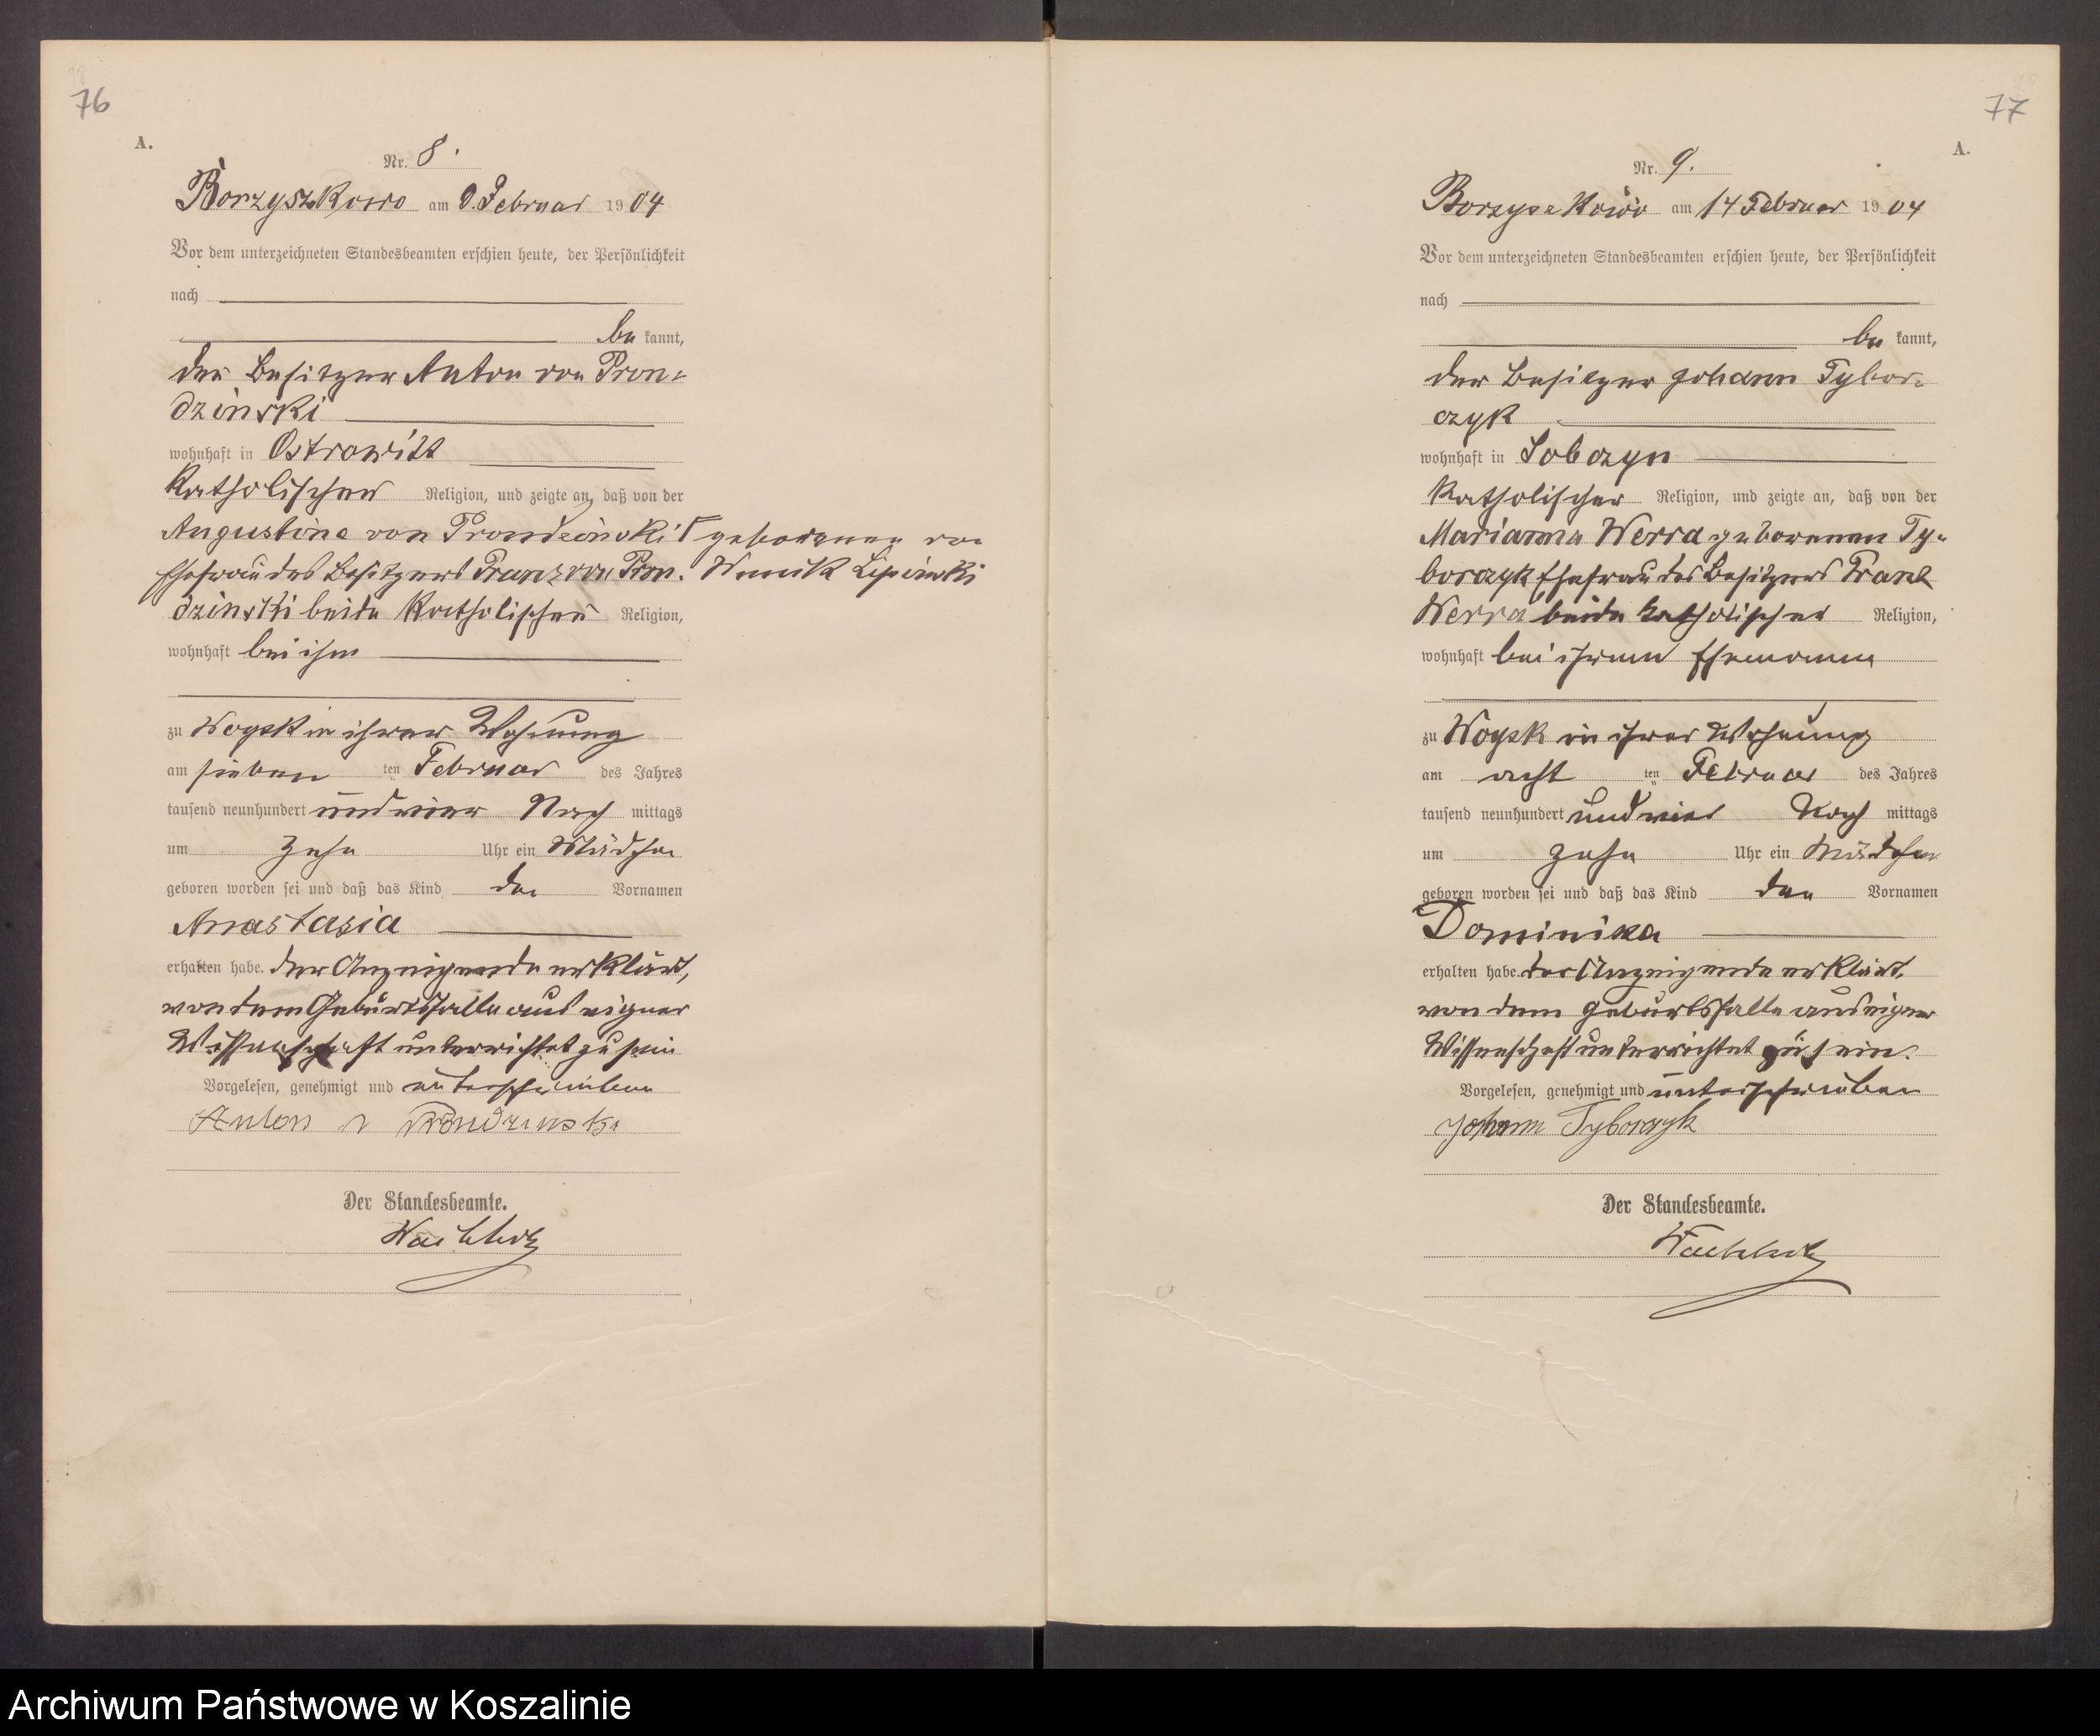 76
A.
Nr. 8.
Borzyszkowo am 9. Februar 1904
Vor dem unterzeichneten Standesbeamten erschien heute, der Persönlichkeit
nach
be kannt,
der Besitzer Anton von Pron-
dzinski
wohnhaft in Ostrowitt
katholischer Religion, und zeigte an, daß von der
Augustine von Prondzinski Γ geborenen von
Ehefrau des Besitzers Franz von Pron- Wnuck Lipinski
dzinski beide katholischer Religion,
wohnhaft bei ihm
zu Woysk in ihrer Wohnung
am sieben ten Februar des Jahres
tausend neunhundert und vier Nach mittags
um zehn Uhr ein Mädchen
geboren worden sei und daß das Kind den Vornamen
Anastasia
erhalten habe. Der Anzeigende erklärt,
von dem Geburtsfalle aus eigner
Wissenschaft unterrichtet zu sein
Vorgelesen, genehmigt und unterschrieben
Anton v Prondzinski
Der Standesbeamte.
Wachholz
77
A.
Nr. 9.
Borzyszkowo am 14 Februar 1904
Vor dem unterzeichneten Standesbeamten erschien heute, der Persönlichkeit
nach
be kannt,
der Besitzer Johann Tybor-
czyk
wohnhaft in Lobczyn
katholischer Religion, und zeigte an, daß von der
Marianna Werra geborenen Ty-
borczyk Ehefrau des Besitzers Franz
Werra beide katholischer Religion,
wohnhaft bei ihrem Ehemanne
zu Woysk in ihrer Wohnung
am acht ten Februar des Jahres
tausend neunhundert und vier Nach mittags
um zehn Uhr ein Mädchen
geboren worden sei und daß das Kind den Vornamen
Dominika
erhalten habe. Der Anzeigende erklärt,
von dem Geburtsfalle aus eigner
Wissenschaft unterrichtet zu sein.
Vorgelesen, genehmigt und unterschrieben
Johann Tyborczyk
Der Standesbeamte.
Wachholz
Archiwum Państwowe w Koszalinie